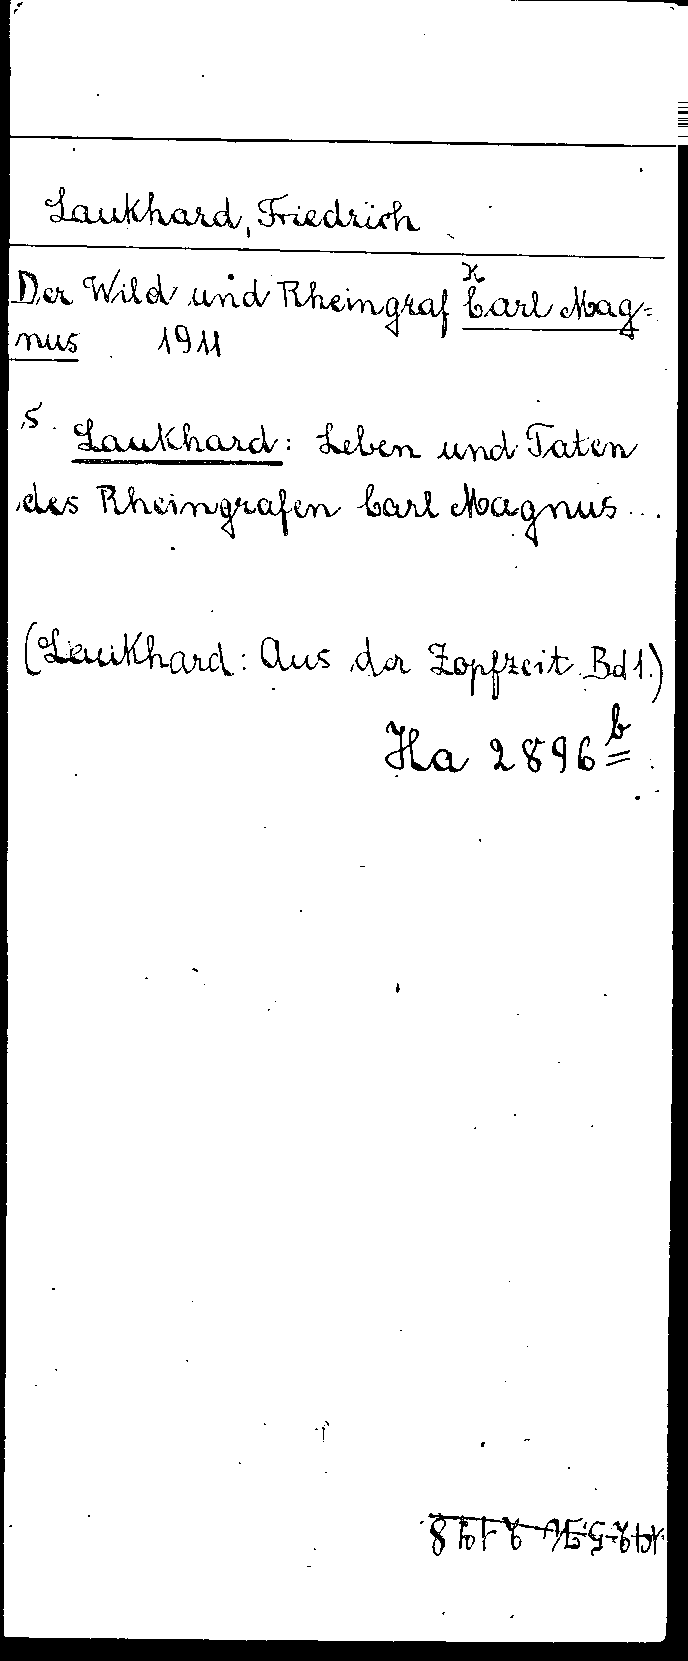 Laukhard, Friedrich
Der Wild und Rheingraf Carl Mag=
nus 1911
s. Laukhard: Leben und Taten
des Rheingrafen Carl Magnus...
(Laukhard: Aus der Zopfzeit Bd 1.)
Ha 2896 b